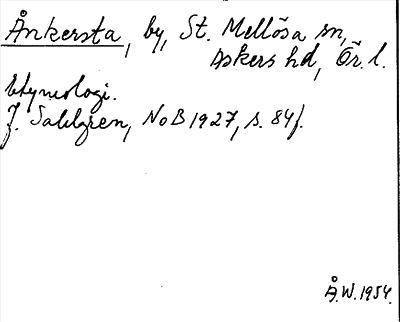 Ånkersta, by, St. Mellösa sn,
Askers hd, Ör. l.
Etymologi.
J. Sahlgren, NoB 1927, s. 84f.
Å.W. 1954.